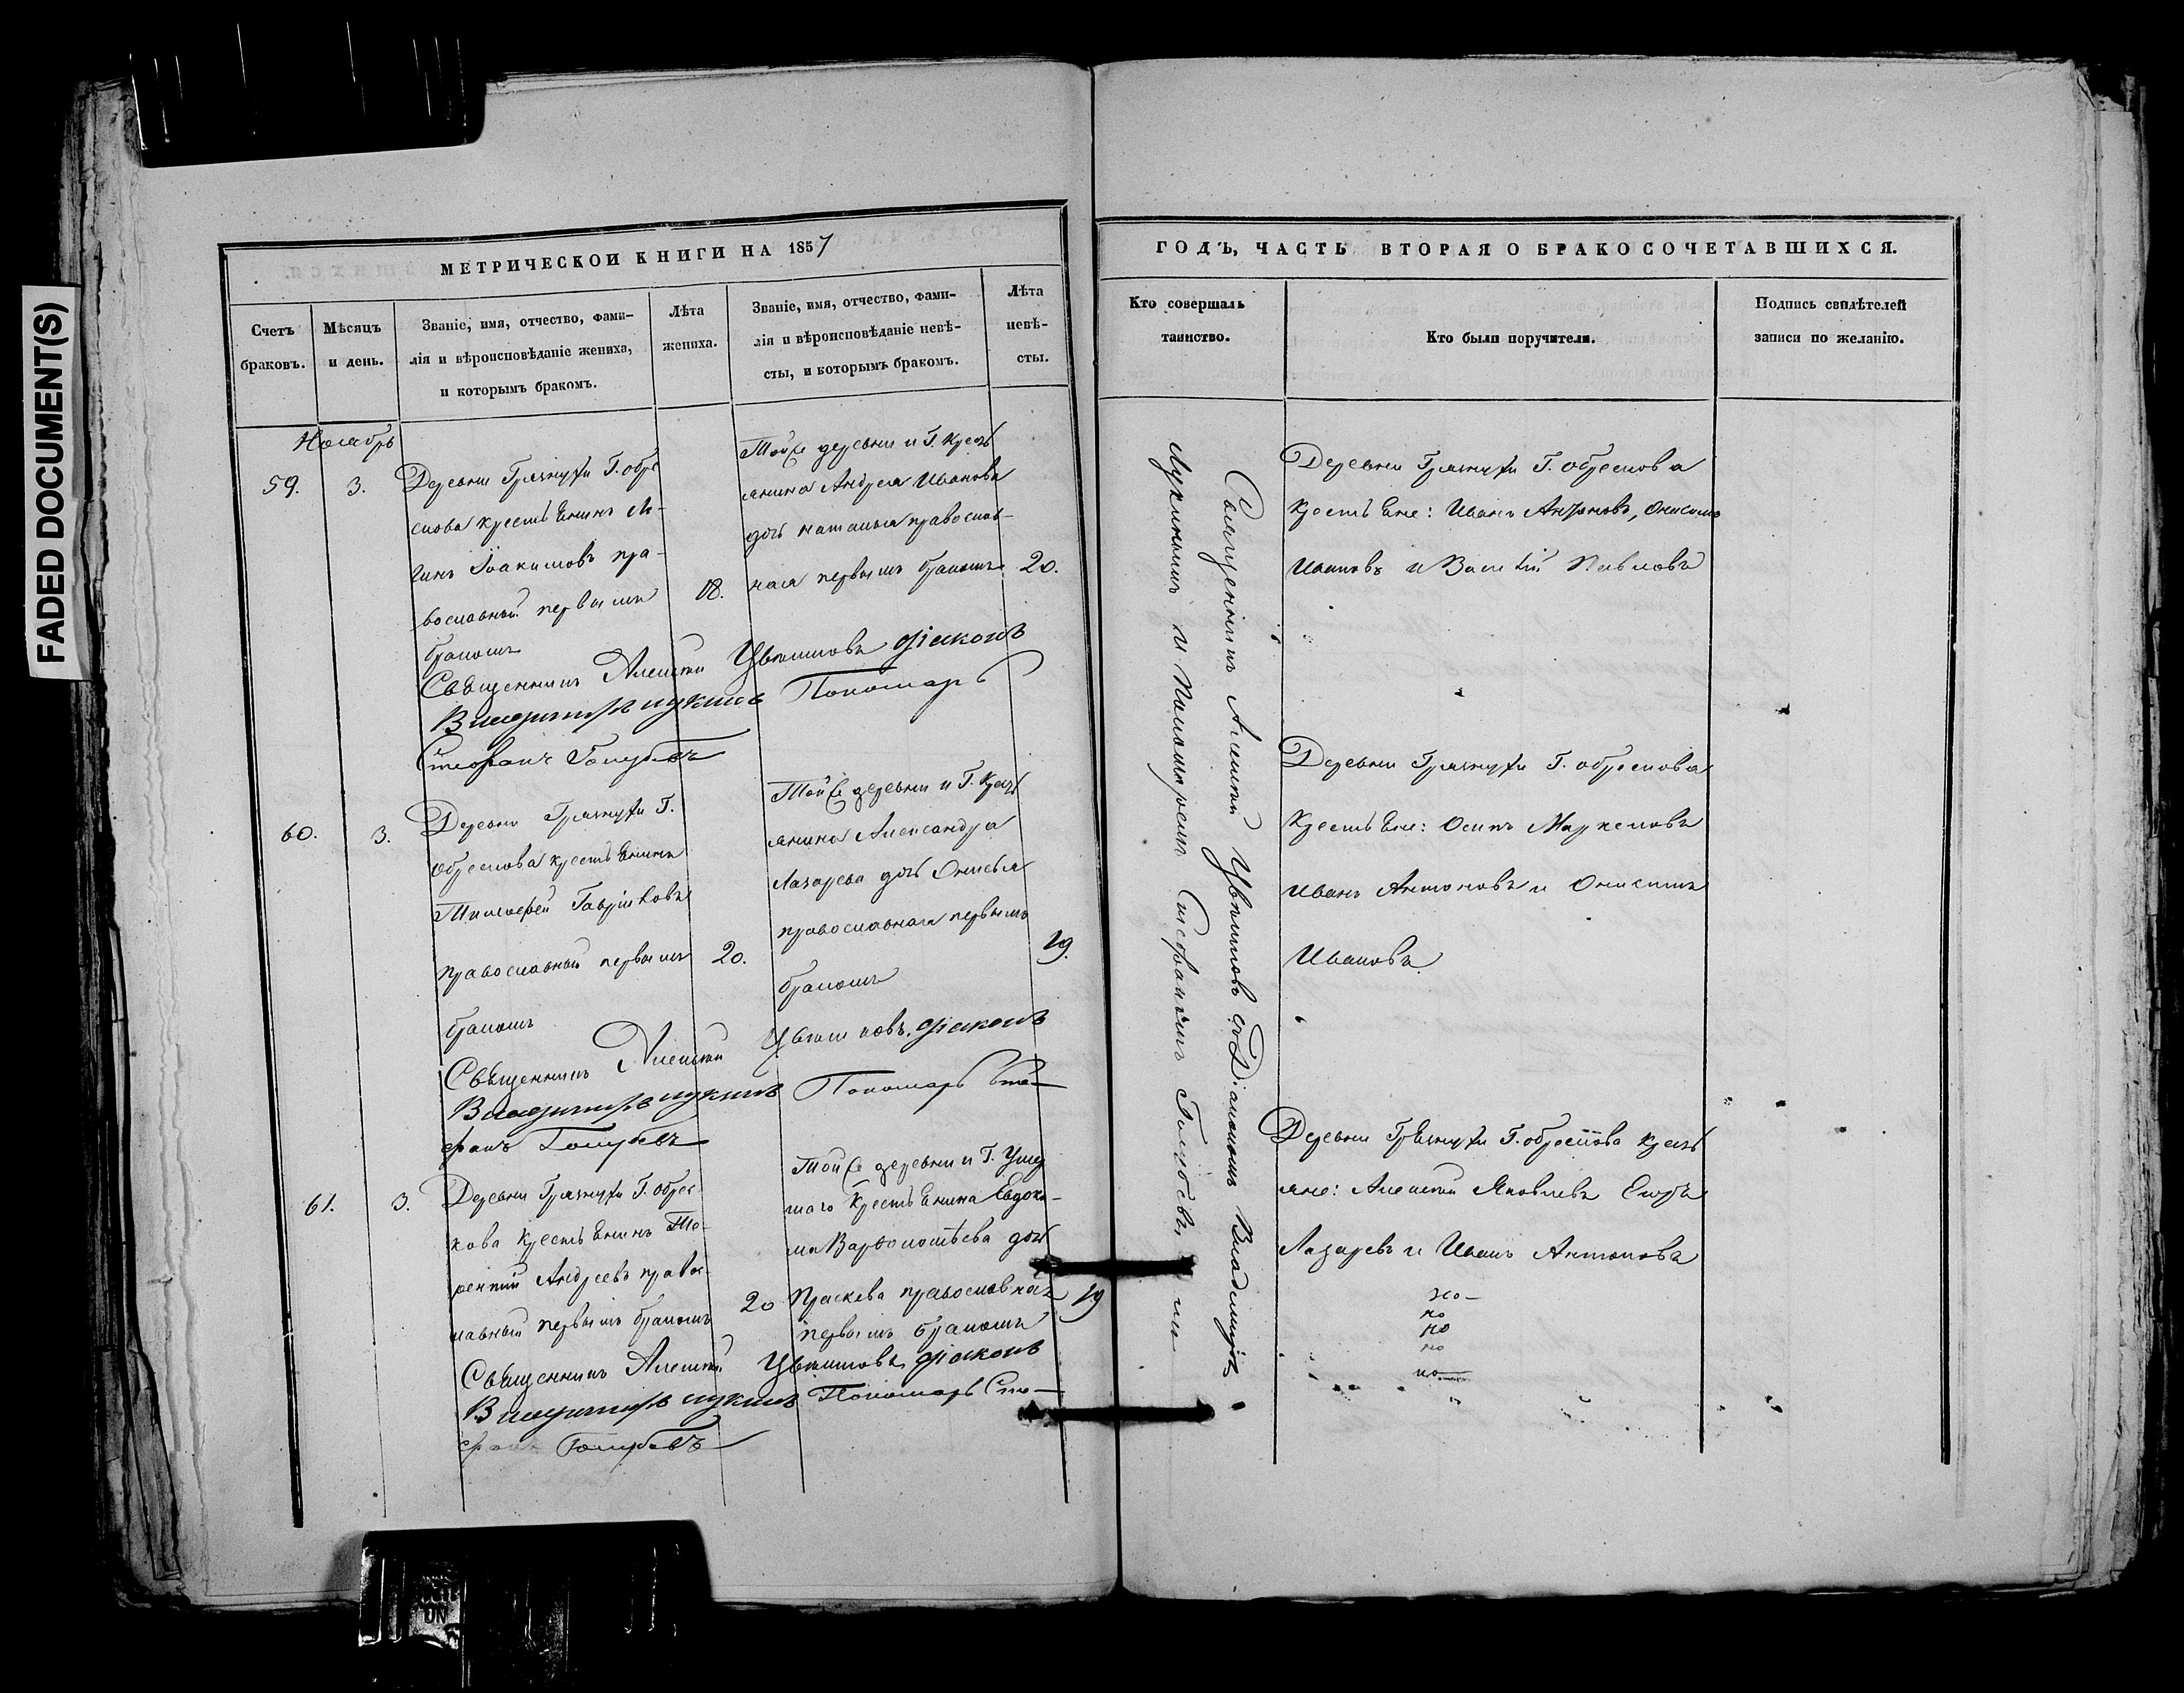 FADED DOCUMENT(S)
МЕТРИЧЕСКОЙ КНИГИ НА 1857
Счетъ браковъ.
Мѣсяцъ и день.
Званіе, имя, отчество, фами-
лія и вѣроисповѣданіе жениха,
и которымъ бракомъ.
Лѣта
жениха.
Званіе, имя, отчество, фами-
лія и вѣроисповѣданіе невѣ-
сты, и которымъ бракомъ.
Лѣта
невѣ-
сты.
Ноябрь
59.
3.
Деревни Грязнухи Г. Обре
скова крестьянинъ Ло-
гинъ Іоакимовъ пра-
вославный первымъ
бракомъ
18.
Той же деревни и Г. крест
янина Андрея Иванова
дочь Наталья православ-
ная первымъ бракомъ
20.
Священникъ Алексѣй Цвѣтковъ Діаконъ
Владимиръ Лукинъ Пономарь
Стефанъ Голубевъ
60.
3.
Деревни Грязнухи Г.
Обрескова крестьянинъ
Тимофей Гавриловъ
православный первымъ
бракомъ
20.
Той же деревни и Г. крест
янина Александра
Лазарева дочь Онисья
православная первымъ
бракомъ
19.
Священникъ Алексѣй Цвѣтковъ. Діаконъ
Владимиръ Лукинъ Пономарь Сте-
фанъ Голубевъ
61.
3.
Деревни Грязнухи Г. Обрес
кова крестьянинъ Те-
рентий Андреевъ правос
лавный первымъ бракомъ
20
Той же деревни и Г.
крестьянина Евдоки-
ма Варфоломѣева дочь
Праскева православная
первымъ бракомъ
19
Священникъ Алексѣй Цвѣтковъ Діаконъ
Владимиръ Лукинъ Пономарь Сте-
фанъ Голубевъ
ГОДЪ, ЧАСТЬ ВТОРАЯ О БРАКОСОЧЕТАВШИХСЯ.
Кто совершалъ
таинство.
Кто были поручители.
Подпись свидѣтелей
записи по желанію.
Священникъ Алексѣй Цвѣтковъ съ Діакономъ Владимиромъ
Лукинымъ и Пономаремъ Стефаномъ Голубевымъ
Деревни Грязнухи Г. Обрескова
крестьяне: Иванъ Антоновъ, Онисимъ
Ивановъ и Василій Павловъ
Деревни Грязнухи Г. Обрескова
крестьяне: Осипъ Маркеловъ
Иванъ Антоновъ и Онисимъ
Ивановъ.
Деревни Грязнухи Г. Обрескова крест
яне: Алексѣй Яковлевъ Егоръ
Лазаревъ и Иванъ Антоновъ
но
но
но
но